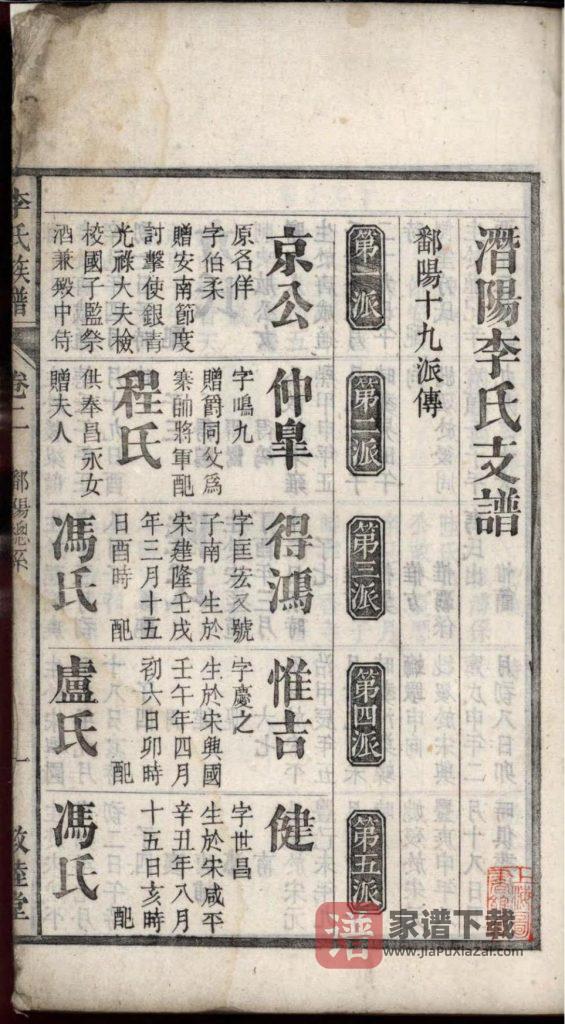 潛陽李氏支譜
鄱陽十九派傳
第一派
京公
原名佯
字伯柔
贈安南節度
討擊使銀青
光祿大夫檢
校國子監祭
酒兼殿中侍
第二派
仲臯
字鳴九
贈爵同父爲
寨帥將軍配
程氏
供奉昌永女
贈夫人
第三派
得鴻
字匡宏又號
子南 生於
宋建隆壬戌
年三月十五
日酉時 配
馮氏
第四派
惟吉
字慶之
生於宋興國
壬午年四月
初六日卯時
配
盧氏
第五派
健
字世昌
生於宋咸平
辛丑年八月
十五日亥時
配
馮氏
李氏族譜
卷二
鄱陽總系
一
敦睦堂
譜
家谱下载
www.jiaPuxiazai.com